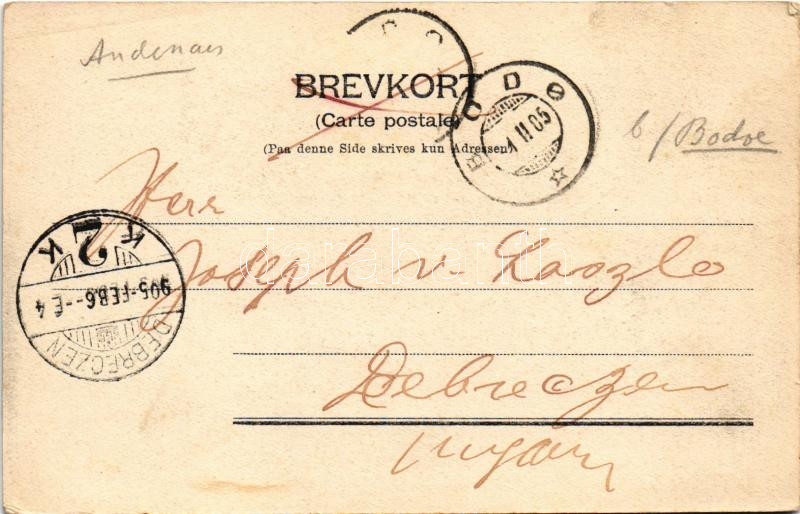 Andenaes
BREVKORT
(Carte postale)
(Paa denne Side skrives kun Adressen)
BODØ
1 II 05
b/Bodoe
Herr
Joseph v. Laszlo
Debreczen
Ungarn
2
K K
905-FEB.6--E.4
DEBRECZEN
darabanth